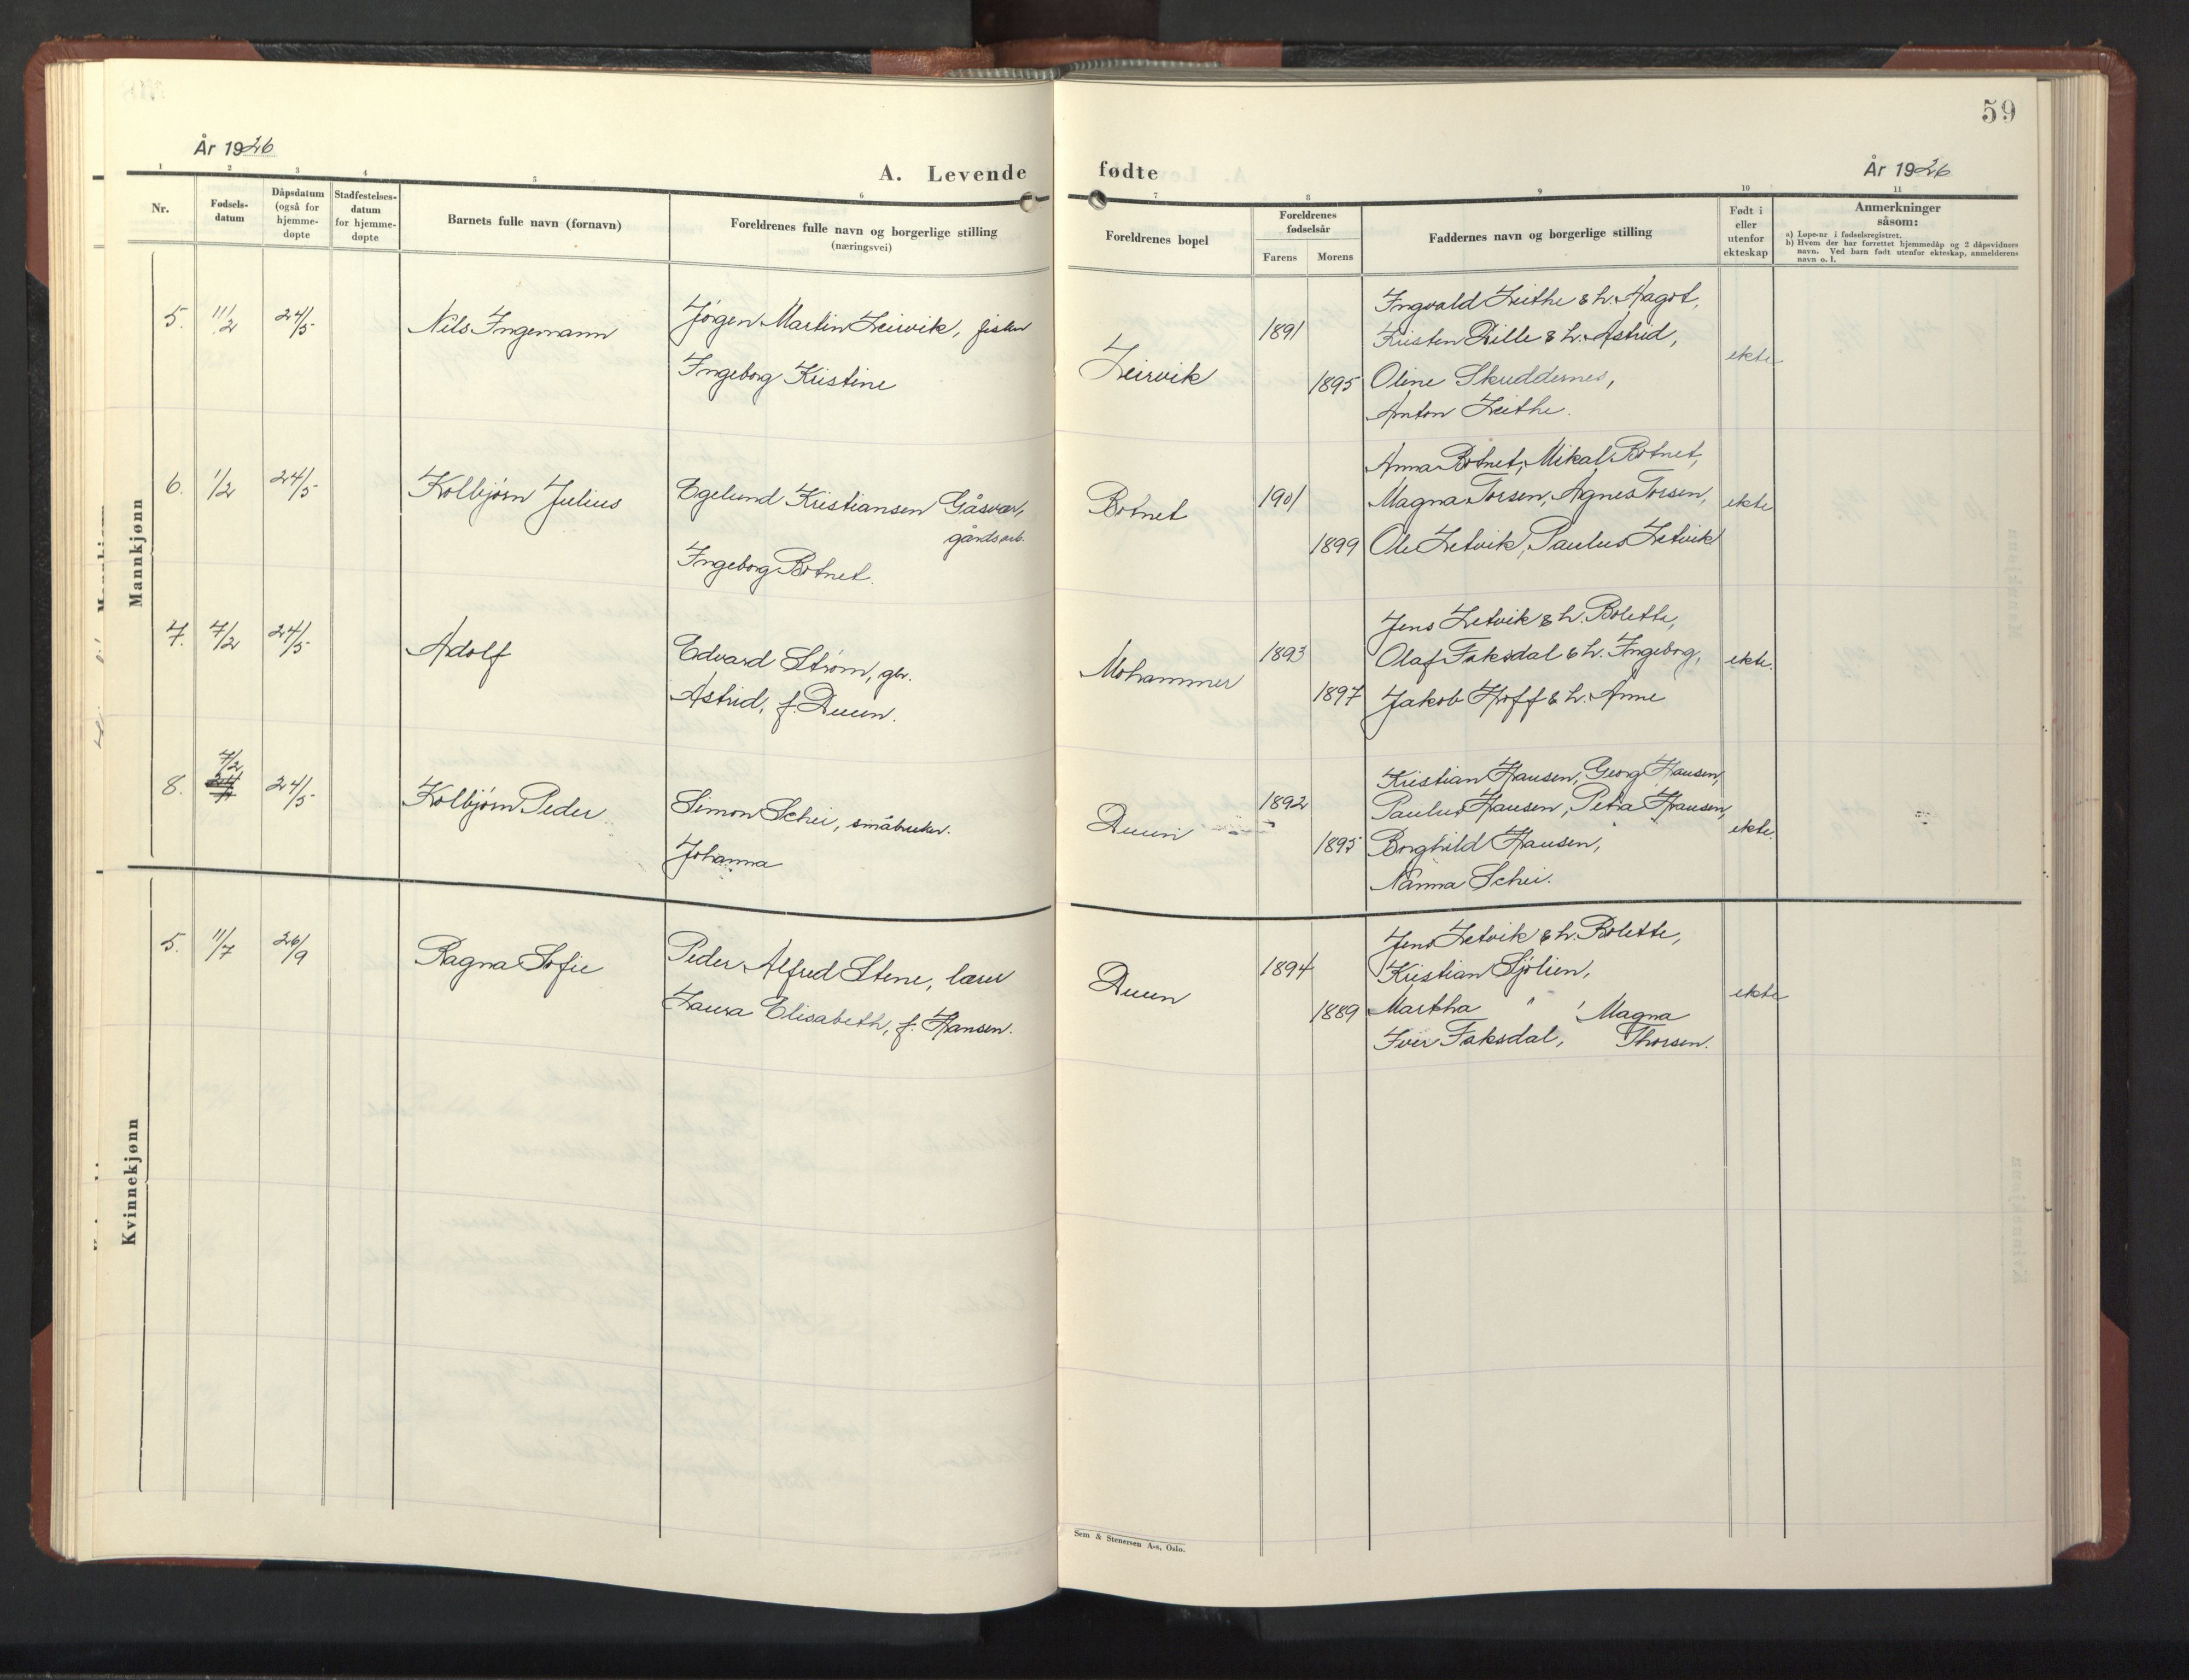 59
År 1926
År 1926
A. Levende
fødte
1
2
3
4
5
6
7
8
9
10
11
Nr.
Fødsels-
datum
Dåpsdatum
(også for
hjemme-
døpte
Stadfestelses-
datum
for hjemme-
døpte
Barnets fulle navn (fornavn)
Foreldrenes fulle navn og borgerlige stilling
(næringsvei)
Foreldrenes bopel
Foreldrenes
fødselsår
Farens
Morens
Faddernes navn og borgerlige stilling
Født i
eller
utenfor
ekteskap
Anmerkninger
såsom:
a) Løpe-nr. i fødselsregistret.
b) Hvem der har forrettet hjemmedåp og 2 dåpsvidners
navn. Ved barn født utenfor ekteskap, anmelderens
navn o. l.
Mannkjønn
5. 11/2 24/5 Nils Ingemann
Jørgen Martin Leirvik, fisker
Ingeborg Kristine
Leirvik
1891
1895
Ingvald Leithe & h. Aagot,
Kristen Lille & h. Astrid,
Oline Skuddernes,
Anton Leithe.
ekte
6. 1/2 24/5 Kolbjørn Julius
Egelund Kristiansen Gåsvær,
gårdsarb.
Ingeborg Botnet.
Botnet
1901
1899
Anna Botnet, Mikal Botnet,
Magna Torsen, Agnes Torsen,
Ole Letvik, Paulus Letvik
ekte
7. 7/2 24/5 Adolf
Edvard Strøm, gbr.
Astrid, f. Duun.
Mohammer
1893
1897
Jens Letvik & h. Bolette,
Olaf Faksdal & h. Ingeborg,
Jakob Hoff & h. Anne
ekte.
8. 7/2 24/5 Kolbjørn Peder
Simon Schei, småbruker.
Johanna
Duun
1892
1895
Kristian Hansen, Georg Hansen,
Paulus Hansen, Petra Hansen,
Borghild Hansen,
Nanna Schei.
ekte.
Kvinnekjønn
5. 11/7 26/9 Ragna Sofie
Peder Alfred Stene, lærer
Laura Elisabeth, f. Hansen.
Duun
1894
1889
Jens Letvik & h. Bolette,
Kristian Sjølien,
Martha " , Magna
Iver Faksdal, Thorsen.
ekte
Sem & Stenersen A-s, Oslo.